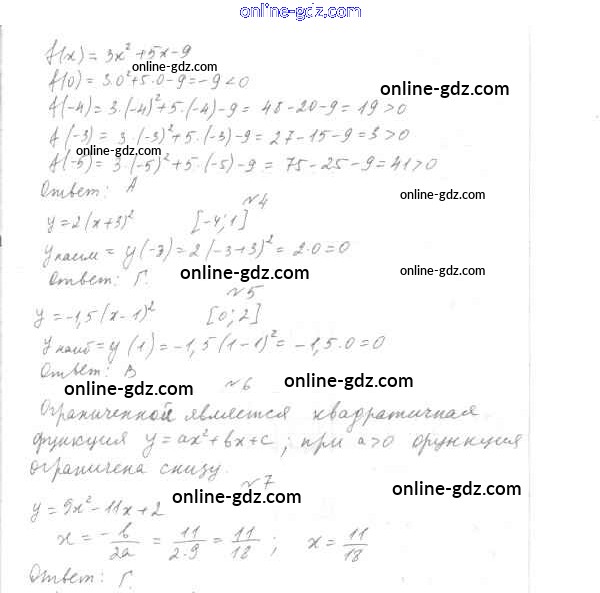 online-gdz.com
f(x) = 3x² + 5x - 9
online-gdz.com
f(0) = 3·0² + 5·0 - 9 = -9 < 0
online-gdz.com
f(-4) = 3·(-4)² + 5·(-4) - 9 = 48 - 20 - 9 = 19 > 0
f(-3) = 3·(-3)² + 5·(-3) - 9 = 27 - 15 - 9 = 3 > 0
online-gdz.com
f(-5) = 3·(-5)² + 5·(-5) - 9 = 75 - 25 - 9 = 41 > 0
Ответ: А
online-gdz.com
№4
y = 2(x+3)² [-4; 1]
y наим = y(-3) = 2(-3+3)² = 2·0 = 0
online-gdz.com online-gdz.com
Ответ: Г.
№5
y = -1,5(x-1)² [0; 2]
y наиб = y(1) = -1,5(1-1)² = -1,5·0 = 0
Ответ: В
online-gdz.com online-gdz.com
№6
Ограниченной является квадратичная
функция y = ax² + bx + c; при a>0 функция
ограничена снизу.
№7
online-gdz.com online-gdz.com
y = 9x² - 11x + 2
x = -b/2a = 11/2·9 = 11/18; x = 11/18
Ответ: Г.
online-gdz.com